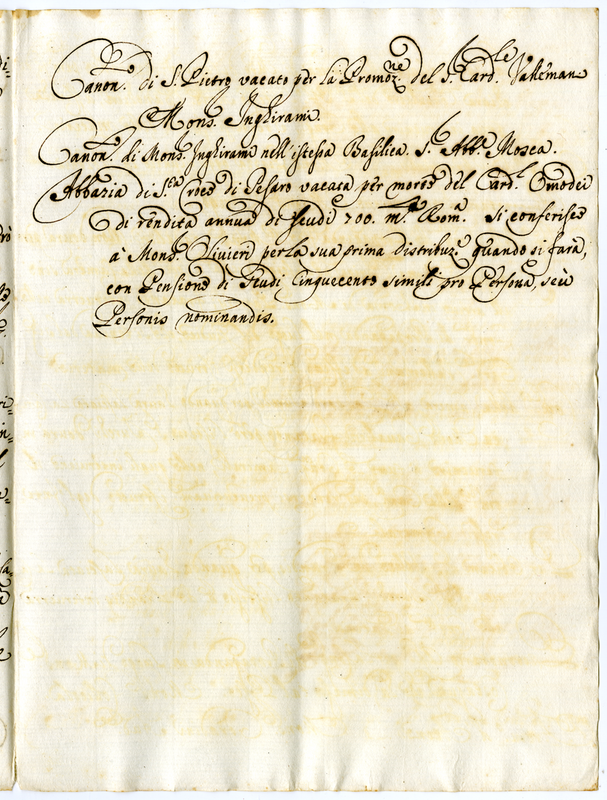 Canon.<sup>to</sup> di S. Pietro vacato per la Promoz.<sup>ne</sup> del S. Card.<sup>le</sup> Vallemane
Mons. Inghirami.
Canon.<sup>to</sup> di Mons. Inghirami nell'istessa Basilica. S. Abb.<sup>e</sup> Mosca.
Abbazia di S.<sup>ta</sup> Croce di Pesaro vacata per morte del Card.<sup>l</sup> Omodei
di rendita annua di scudi 700. m.<sup>ta</sup> Rom.<sup>a</sup> Si conferisce
à Mons. Olivieri per la sua prima distribuz.<sup>e</sup> quando si farà,
con Pensione di Scudi Cinquecento simili pro Persona, seù
Personis nominandis.